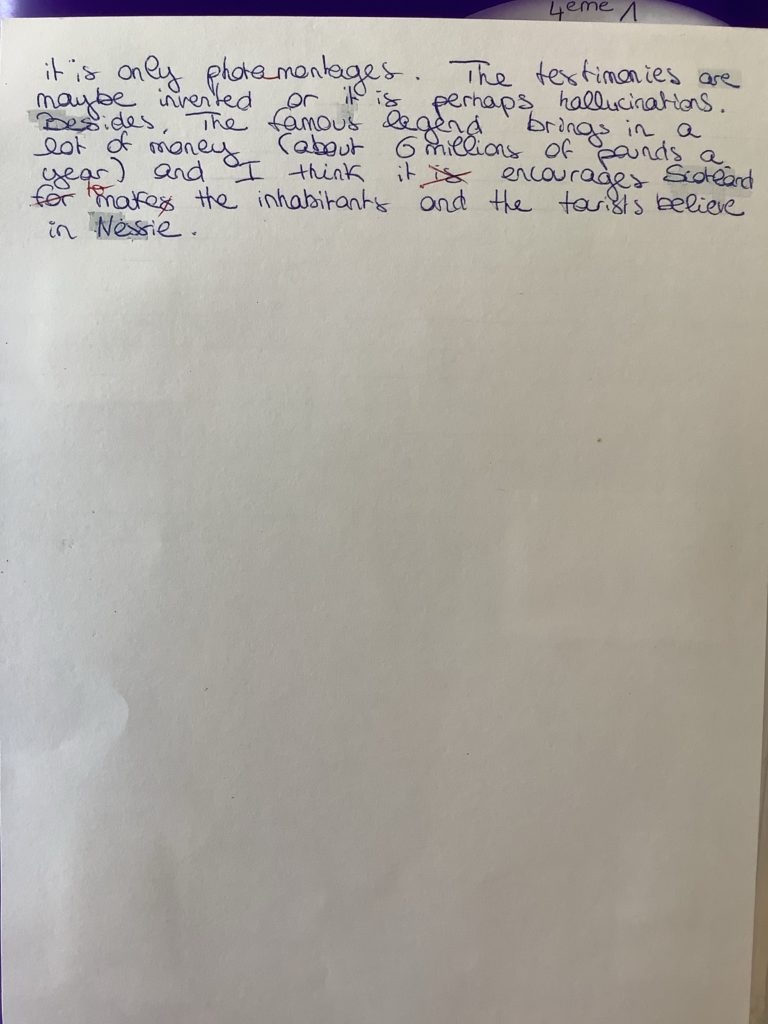 4eme 1
it is only photomontages. The testimonies are
maybe invented or it is perhaps hallucinations.
Besides, The famous legend brings in a
lot of money (about 6 millions of pounds a
year) and I think it is encourages Scotland
for to makes the inhabitants and the tourists believe
in Nessie.